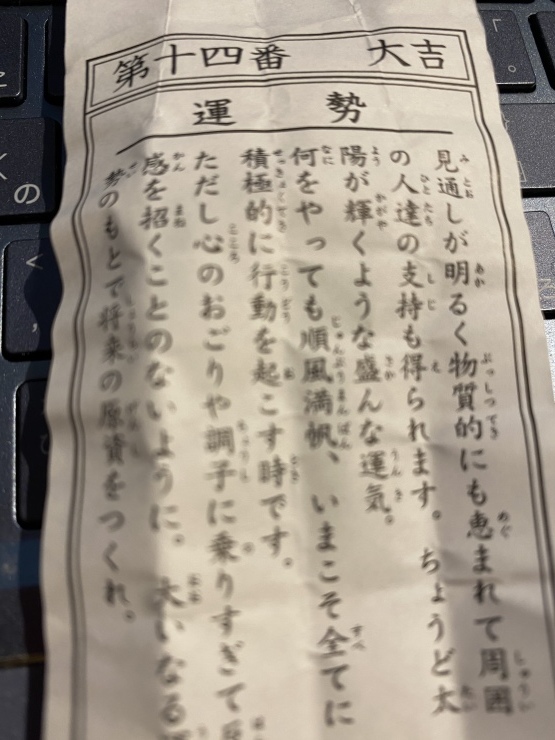 第十四番　大吉
運　勢
見通しが明るく物質的にも恵まれて周囲
の人達の支持も得られます。ちょうど太
陽が輝くような盛んな運気。
何をやっても順風満帆、いまこそ全てに
積極的に行動を起こす時です。
ただし心のおごりや調子に乗りすぎて
感を招くことのないように。大いなる
勢のもとで将来の原資をつくれ。